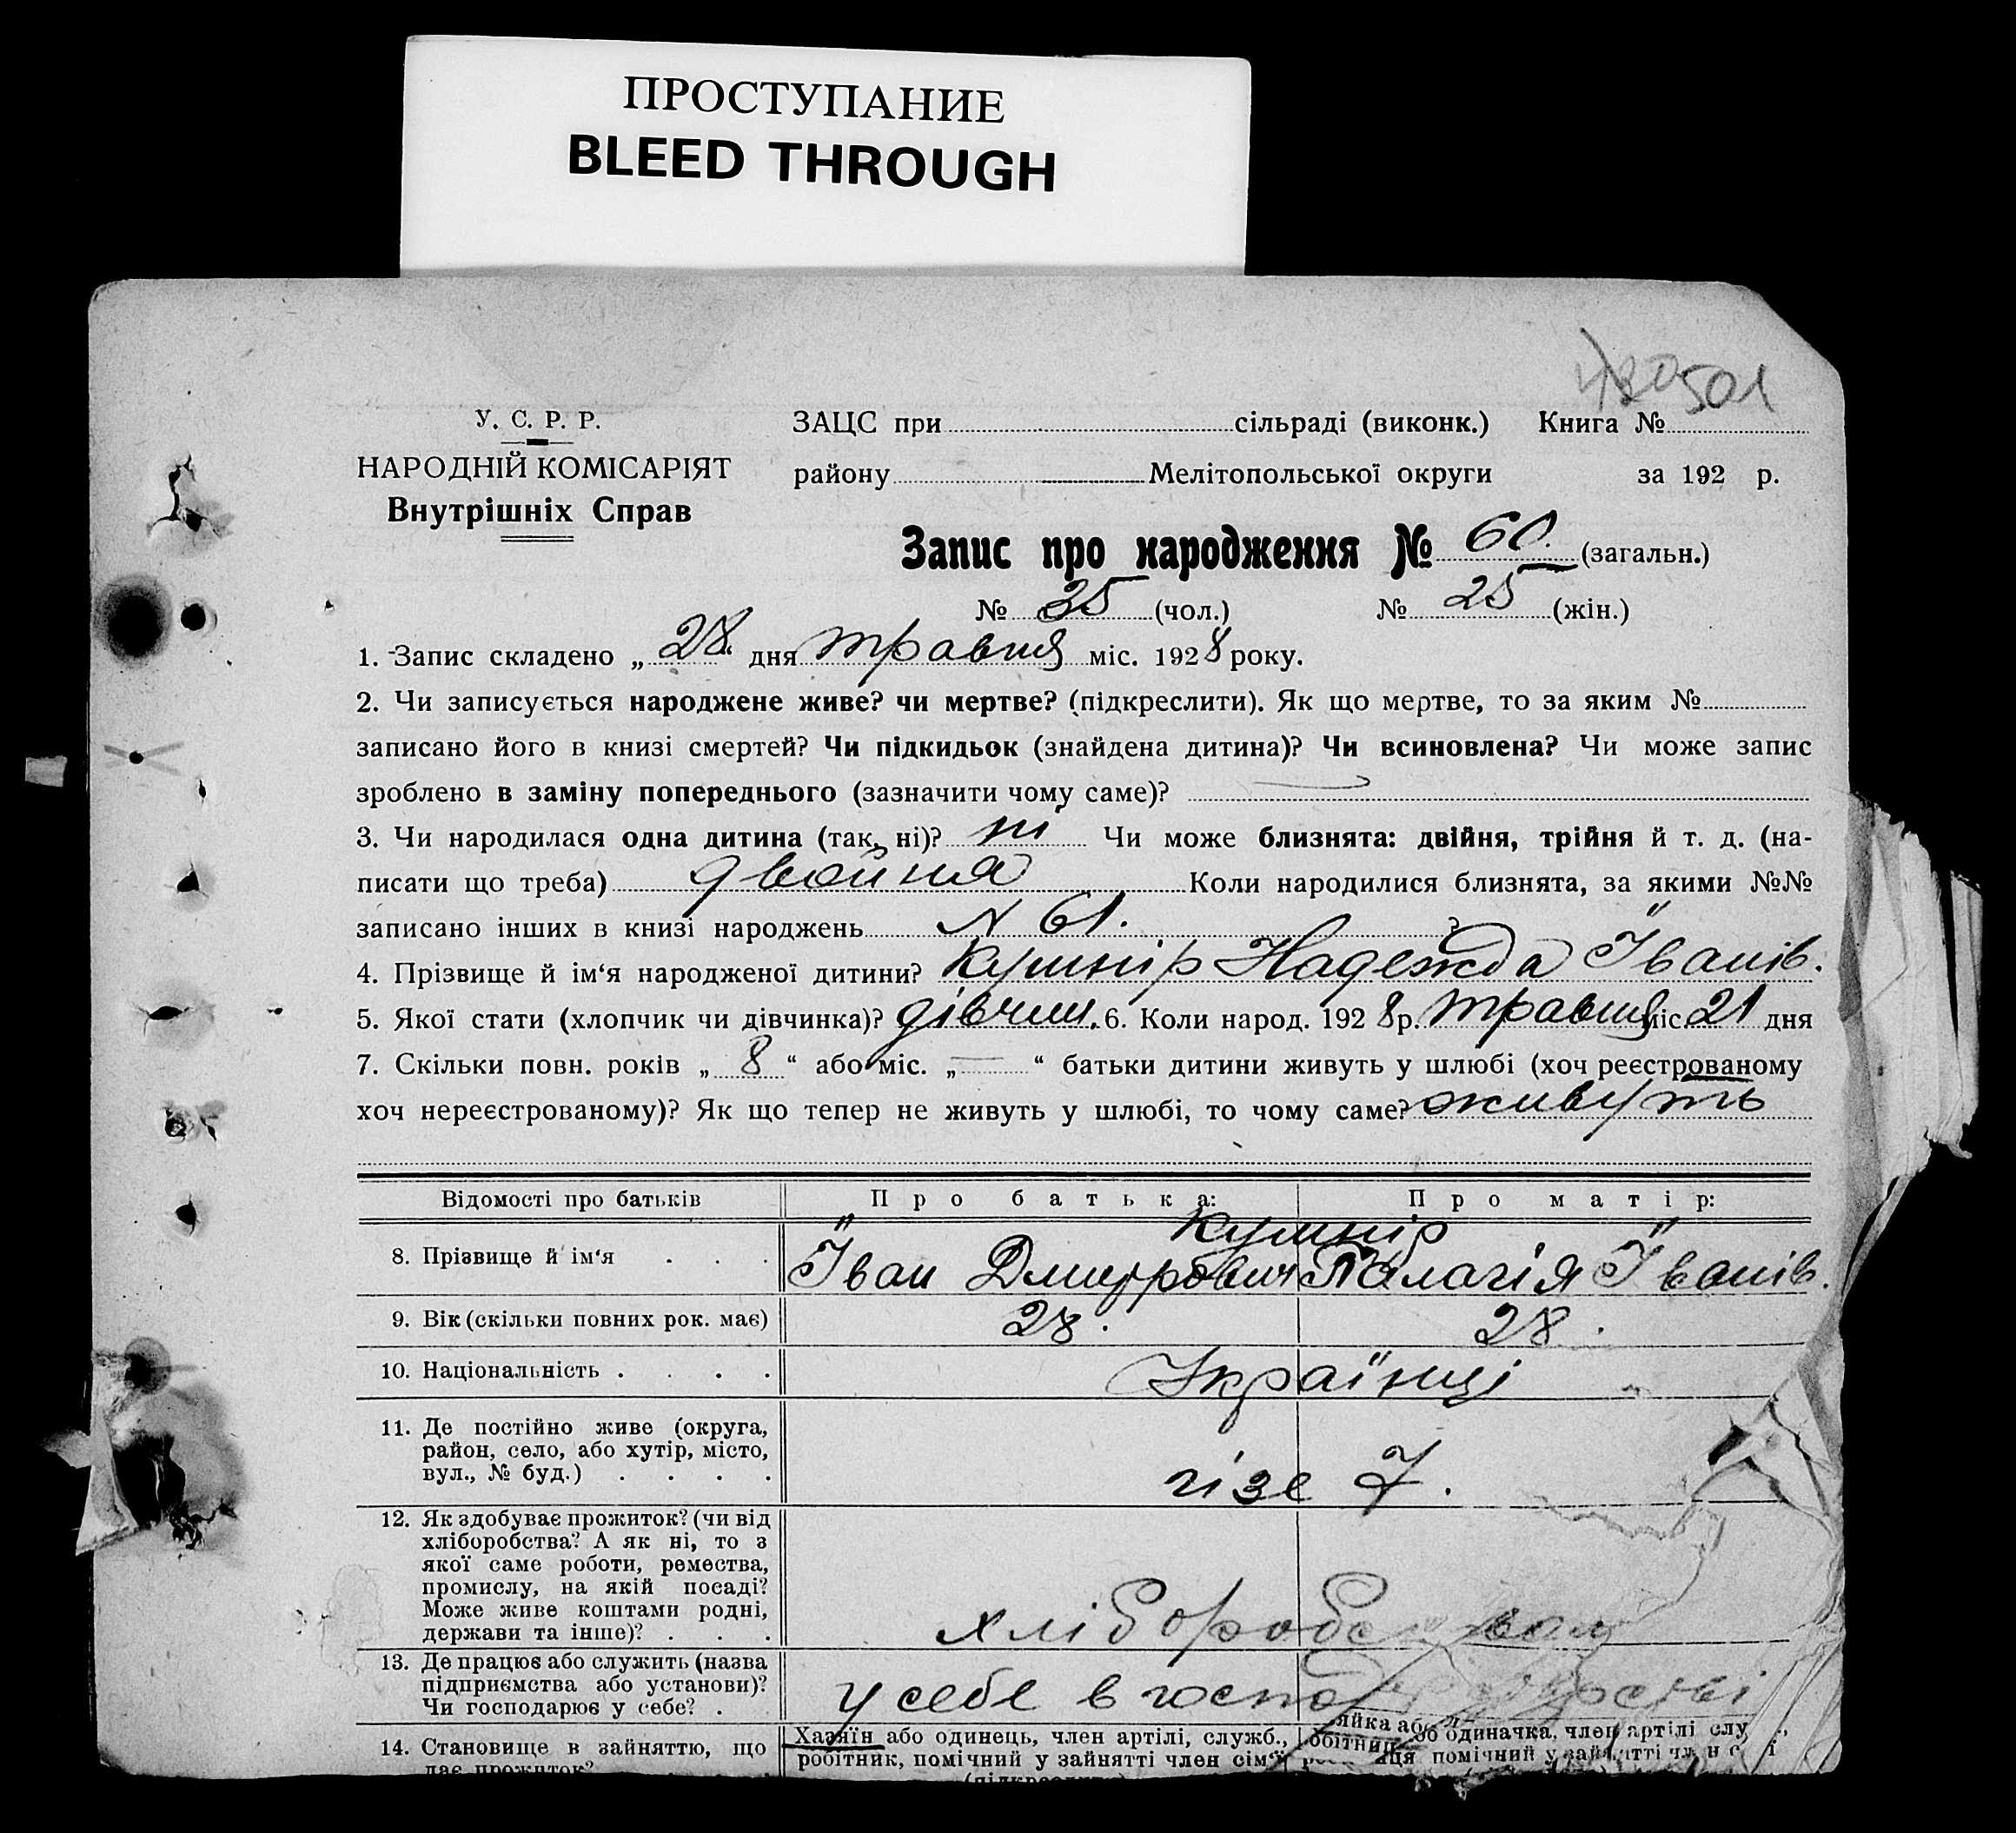 ПРОСТУПАНИЕ
BLEED THROUGH
501
У. С. Р. Р.
НАРОДНІЙ КОМІСАРІЯТ
Внутрішніх Справ
ЗАЦС при сільраді (виконк.) Книга №
району Мелітопольської округи за 192 р.
Запис про народження № 60. (загальн.)
№ 35 (чол.) № 25 (жін.)
1. Запис складено „ 28 “ дня травня міс. 1928 року.
2. Чи записується народжене живе? чи мертве? (підкреслити). Як що мертве, то за яким №
записано його в книзі смертей? Чи підкидьок (знайдена дитина)? Чи всиновлена? Чи може запис
зроблено в заміну попереднього (зазначити чому саме)?
3. Чи народилася одна дитина (так, ні)? ні Чи може близнята: двійня, трійня й т. д. (на-
писати що треба) двойня Коли народилися близнята, за якими №№
записано інших в книзі народжень N 61. ?
4. Прізвище й ім‘я народженої дитини? Кушнір Надежда Їванів.
5. Якої стати (хлопчик чи дівчинка)? дівчин. 6. Коли народ. 1928 р. травня міс. 21 дня
7. Скільки повн. років „ 8 “ або міс. „ — “ батьки дитини живуть у шлюбі (хоч реєстрованому
хоч нереєстрованому)? Як що тепер не живуть у шлюбі, то чому саме? живуть
Відомості про батьків Про батька: Про матір:
Кушнір
8. Прізвище й ім‘я . . . Їван Дмитрович Палагія Їванів.
9. Вік (скільки повних рок. має) 28. 28.
10. Національність . . . . Українці
11. Де постійно живе (округа,
район, село, або хутір, місто,
вул., № буд.) . . . . 7.
12. Як здобуває прожиток? (чи від
хліборобства? А як ні, то з
якої саме роботи, ремества,
промислу, на якій посаді?
Може живе коштами родні,
держави та інше)? . . . хліборобством
13. Де працює або служить (назва
підприємства або установи)?
Чи господарює у себе? . у себе в господарстві
14. Становище в зайняттю, що
дає прожиток?
Хазяїн або одинець, член артілі, служб.,
робітник, помічний у зайнятті член сім‘ї
одиначка, член артілі
помічний у зайнятті